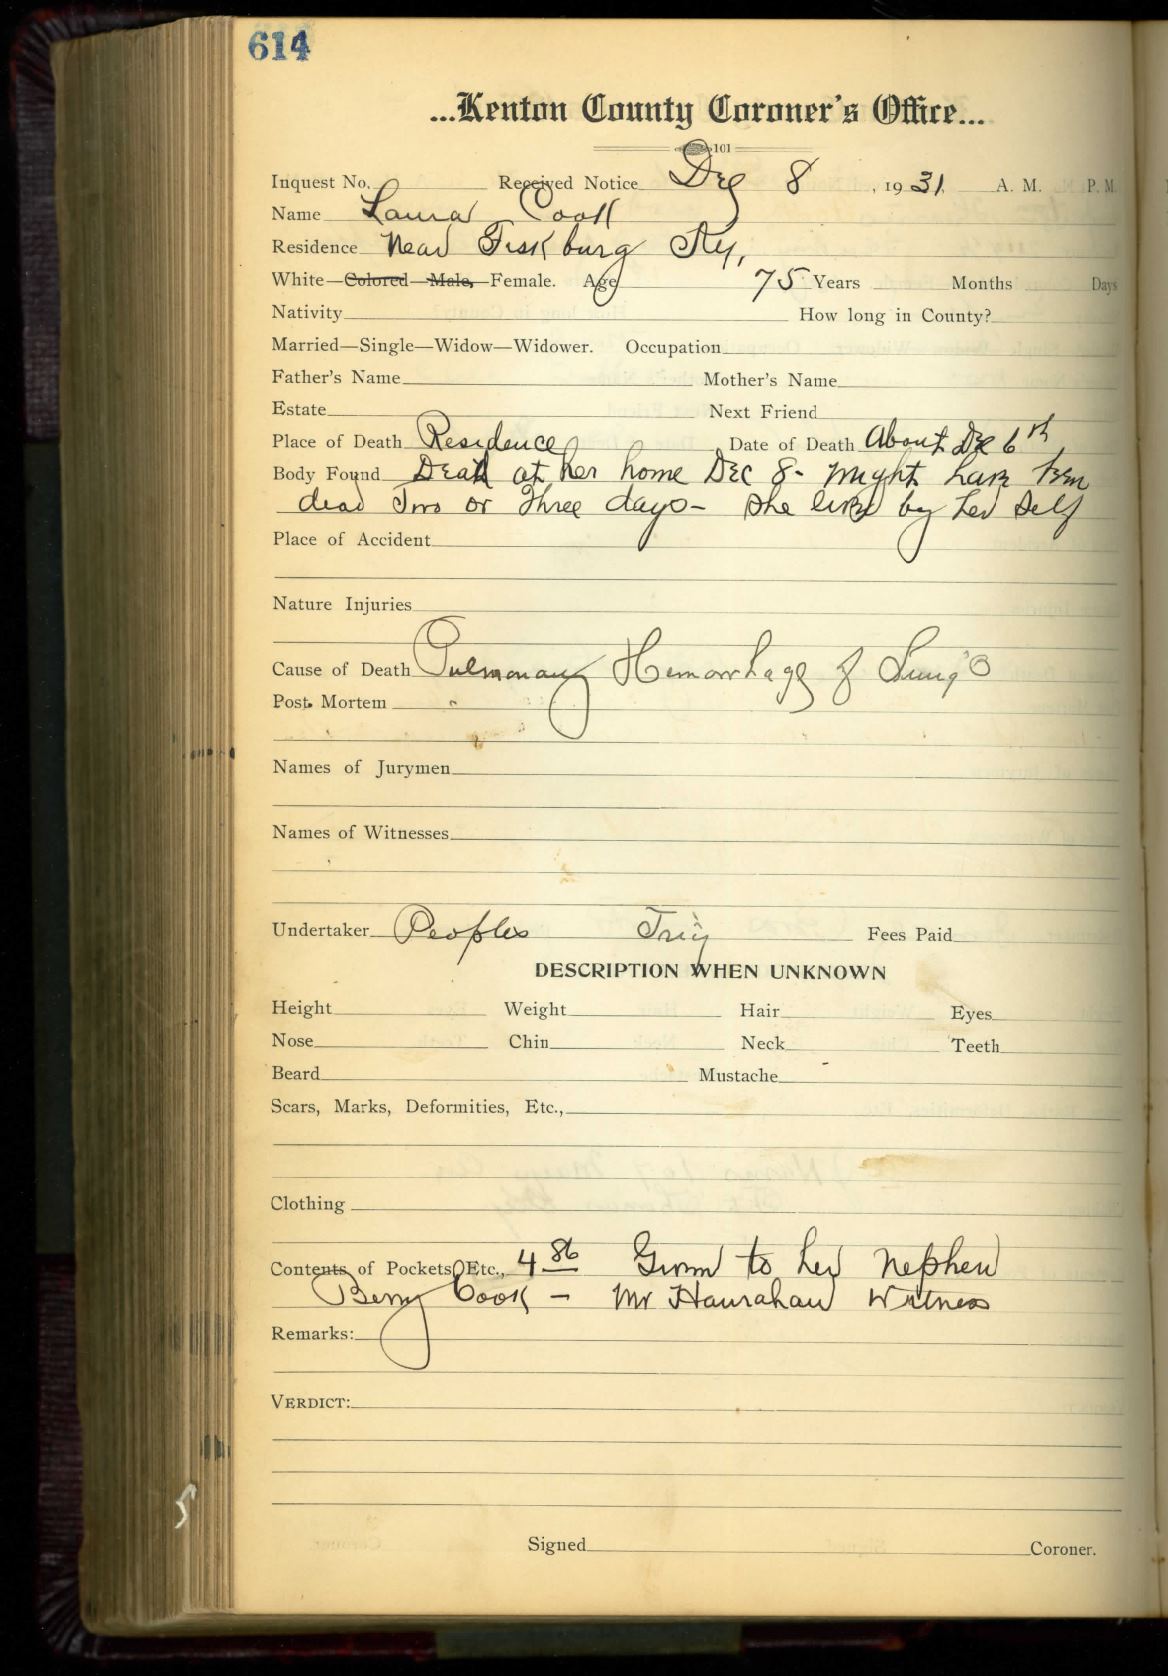 614
...Kenton County Coroner's Office...
101
Inquest No. Received Notice Dec 8, 1931, A. M. P. M.
Name Laura Cook
Residence Near Fiskburg Ky,
White—Colored—Male, Female. Age 75 Years Months Days
Nativity How long in County?
Married—Single—Widow—Widower. Occupation
Father's Name Mother's Name
Estate Next Friend
Place of Death Residence Date of Death About Dec 6th
Body Found Dead at her home Dec 8 - might have been
dead Two or Three days - She lived by her self
Place of Accident
Nature Injuries
Cause of Death Pulmonary Hemorrhage of Lungs
Post Mortem
Names of Jurymen
Names of Witnesses
Undertaker Peoples Fees Paid
DESCRIPTION WHEN UNKNOWN
Height Weight Hair Eyes
Nose Chin Neck Teeth
Beard Mustache
Scars, Marks, Deformities, Etc.,
Clothing
Contents of Pockets, Etc., 4 86 Given to her Nephew
Berry Cook - Mr Hanrahan Witness
Remarks:
VERDICT:
Signed Coroner.